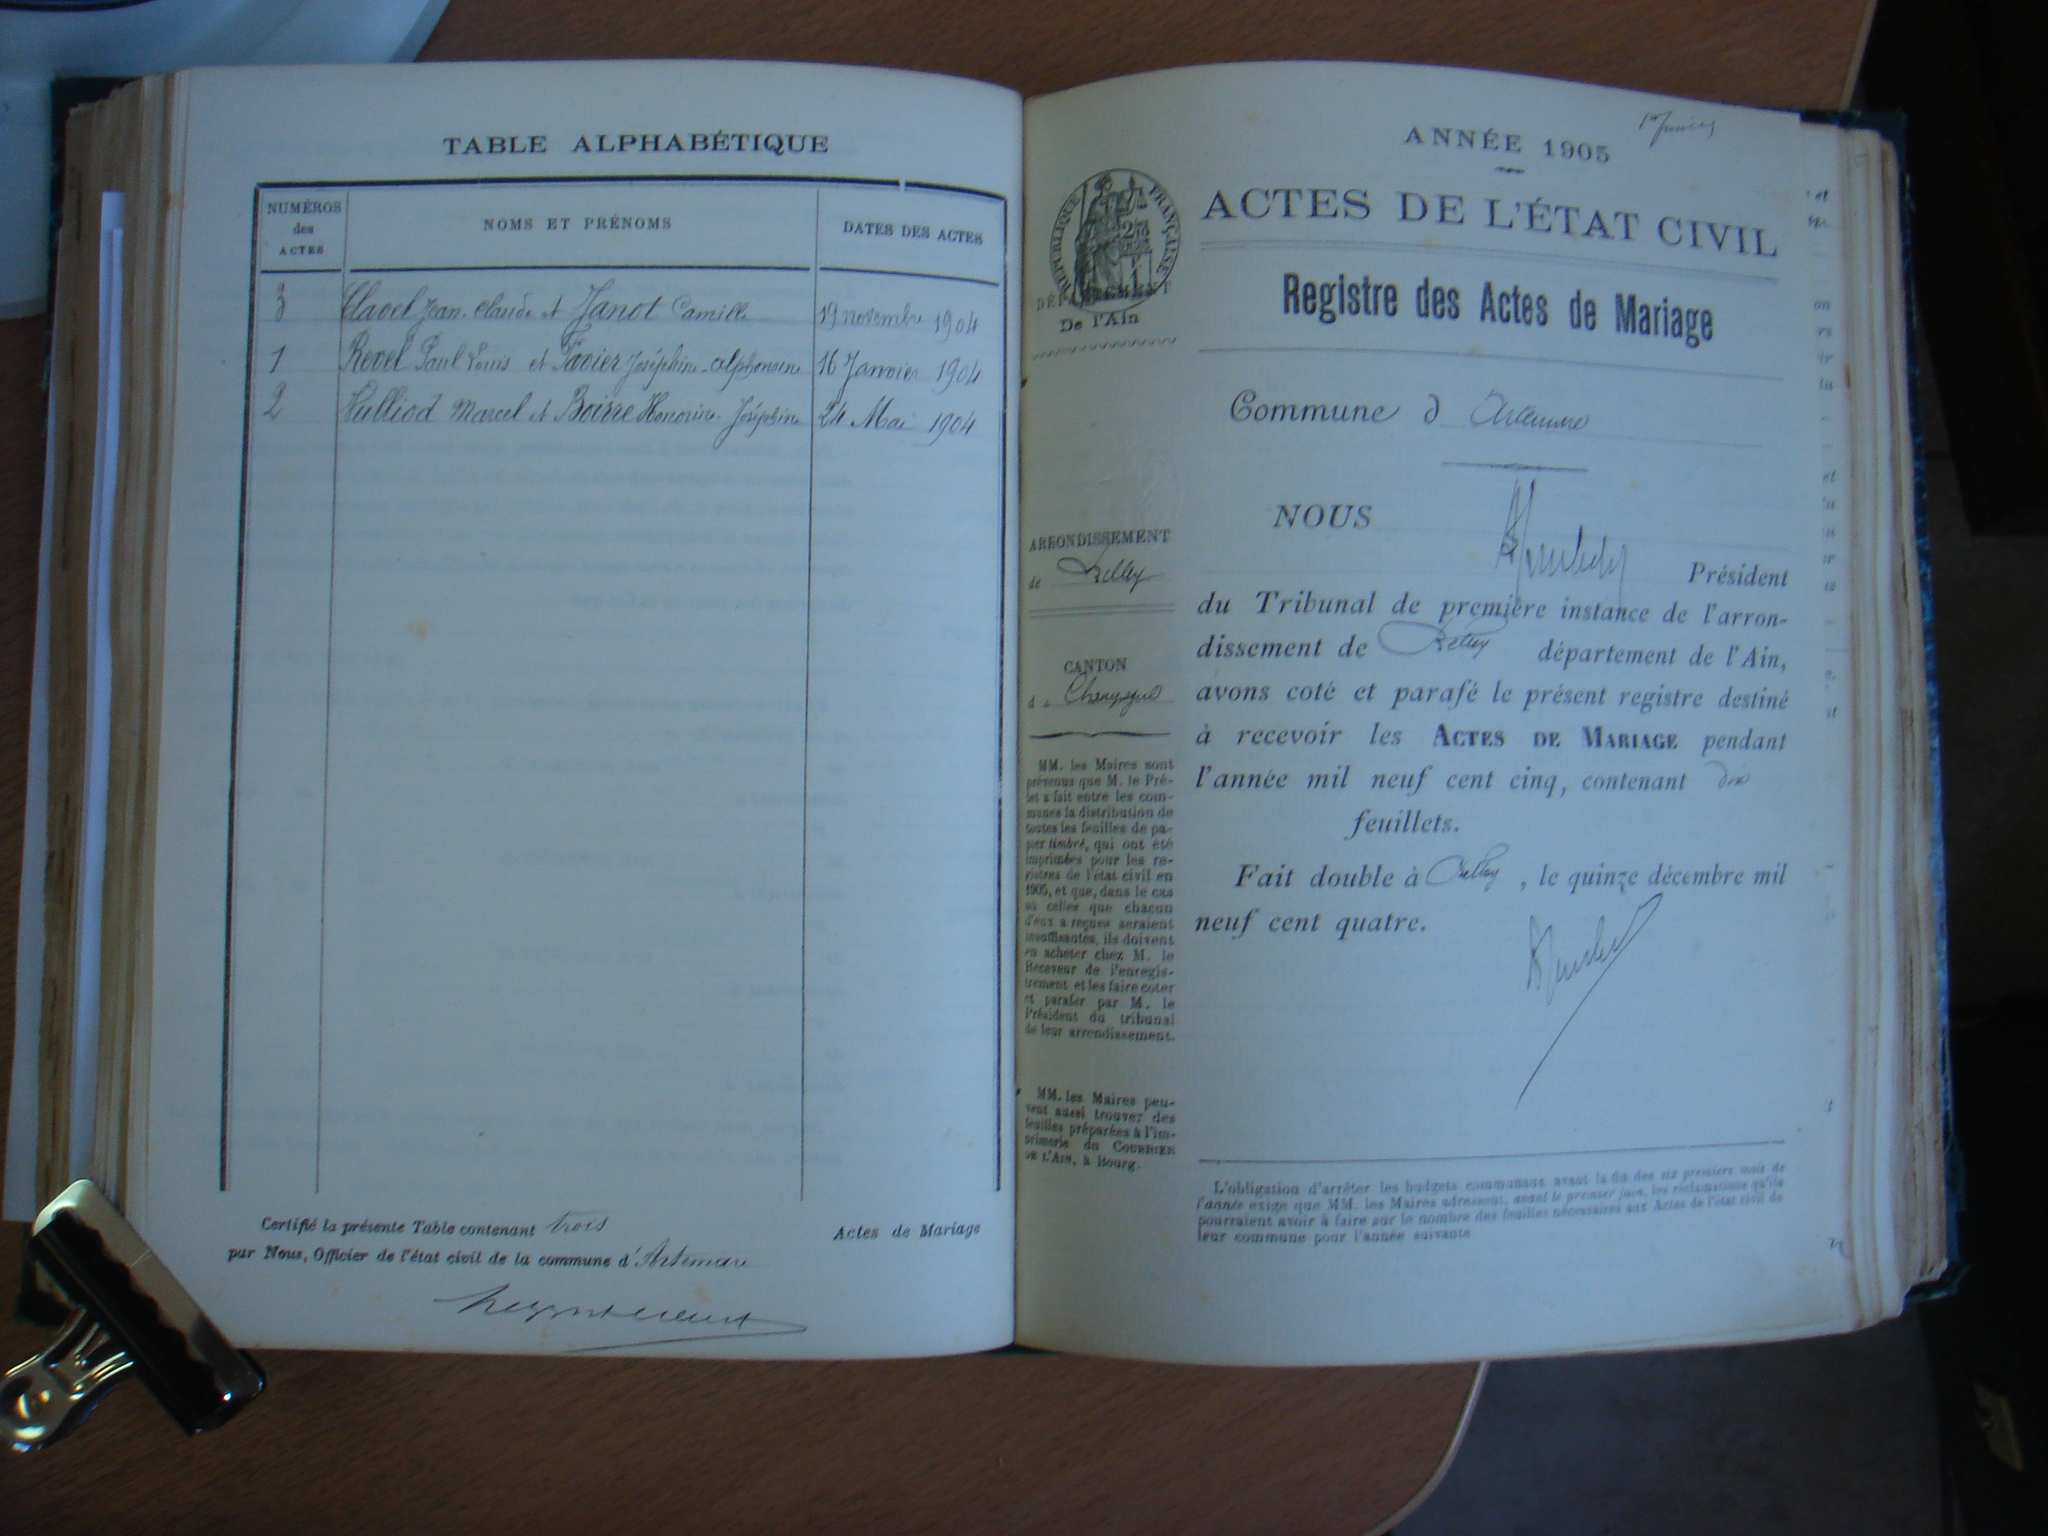 TABLE ALPHABÉTIQUE
NUMÉROS des ACTES
NOMS ET PRÉNOMS
DATES DES ACTES
3 Clavel Jean-Claude et Janot Camille 19 novembre 1904
1 Revel Paul Louis et Favier Joséphine-Alphonsine 16 Janvier 1904
2 Hulliod Marcel et Boirre Honorine-Joséphine 24 Mai 1904
Certifié la présente Table contenant trois Actes de Mariage
par Nous, Officier de l'état civil de la commune d'Artemare
ANNÉE 1905
RÉPUBLIQUE FRANÇAISE
ACTES DE L'ÉTAT CIVIL
DÉPARTEMENT
De l'Ain
Registre des Actes de Mariage
Commune d Artemare
ARRONDISSEMENT
de Belley
CANTON
de Champagne
MM. les Maires sont
prévenus que M. le Pré-
fet a fait entre les com-
munes la distribution de
toutes les feuilles de pa-
pier timbré, qui ont été
imprimées pour les re-
gistres de l'état civil en
1905, et que, dans le cas
où celles que chacun
d'eux a reçues seraient
insuffisantes, ils doivent
en acheter chez M. le
Receveur de l'enregis-
trement et les faire coter
et parafer par M. le
Président du tribunal
de leur arrondissement.
MM. les Maires peu-
vent aussi trouver des
feuilles préparées à l'im-
primerie du COURRIER
DE L'AIN, à Bourg.
NOUS
Président
du Tribunal de première instance de l'arron-
dissement de Belley département de l'Ain,
avons coté et parafé le présent registre destiné
à recevoir les ACTES DE MARIAGE pendant
l'année mil neuf cent cinq, contenant dix
feuillets.
Fait double à Belley, le quinze décembre mil
neuf cent quatre.
L'obligation d'arrêter les budgets communaux avant la fin des six premiers mois de
l'année exige que MM. les Maires adressent, avant le premier juin, les réclamations qu'ils
pourraient avoir à faire sur le nombre des feuilles nécessaires aux Actes de l'état civil de
leur commune pour l'année suivante